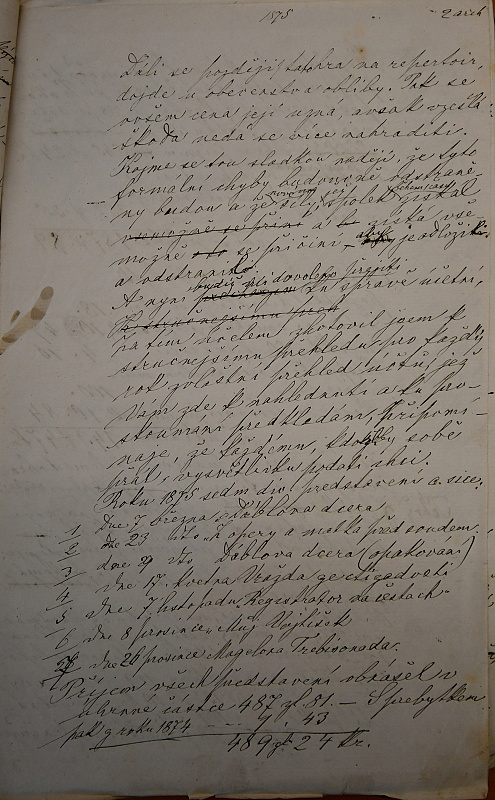 1875
2 arch
Dáli se později tatohra na repertoir,
dojde u obecenstva obliby. Pak se
ovšem cena její uzná, avšak vzešlá
škoda nedá se více nahraditi.
Kojme se tou sladkou nadějí, že tyto
formální chyby budoucně odstraně-
ny budou a že spolek získal
možné se přičiní je odloží
a odstraniti.
A nyní budiž mi dovoleno přejíti
ku správě účetní,
Za tím účelem zhotovil jsem k
stručnějšímu přehledu pro každý
rok zvláštní přehled účtů, jež
Vám zde k nahlednutí a ku pro-
skoumání předkládám, připomí-
naje, že každému, kdožby sobě
přál, vysvětlivku podati chci.
Roku 1875 sedm div. představení a sice:
1 dne 7 března Ďáblova dcera
2 dne 23 dto K opery a matka před soudem
3 dne 29 dto Ďáblova dcera (opakovaní)
4 dne 17. května Vražda ze ctižádosti
5 dne 7 listopadu, Registrator na cestách
6 dne 8 prosince, Můj Vojtíšek
7 dne 26 prosince Magelona Trebisonada.
Příjem všech představení obnášel v
úhrnné částce 487 zl 81. — S přebytkem
pak z roku 1874 --- 1. 43
489 zl 24 kr.